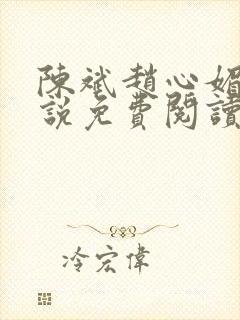 陳斌趙心媚
説免費閱讀
冷宏偉